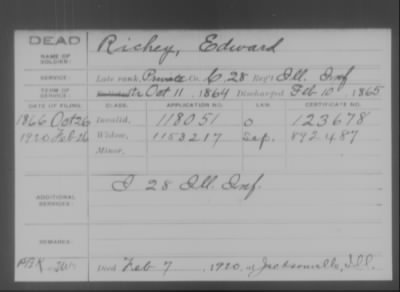 DEAD
NAME OF SOLDIER: Richey, Edward
SERVICE: Late rank, Private Co. C, 28 Reg't Ill. Inf
TERM OF SERVICE: Enlisted Tr Oct 11, 1864 Discharged Feb 10, 1865
DATE OF FILING. CLASS. APPLICATION NO. LAW. CERTIFICATE NO.
1866 Oct 26 Invalid, 118051 O 123678
1920 Feb 26 Widow, 1153217 Sep. 892487
Minor,
ADDITIONAL SERVICES: I 28 Ill. Inf.
REMARKS:
Died Feb 7, 1920, at Jacksonville, Ill.